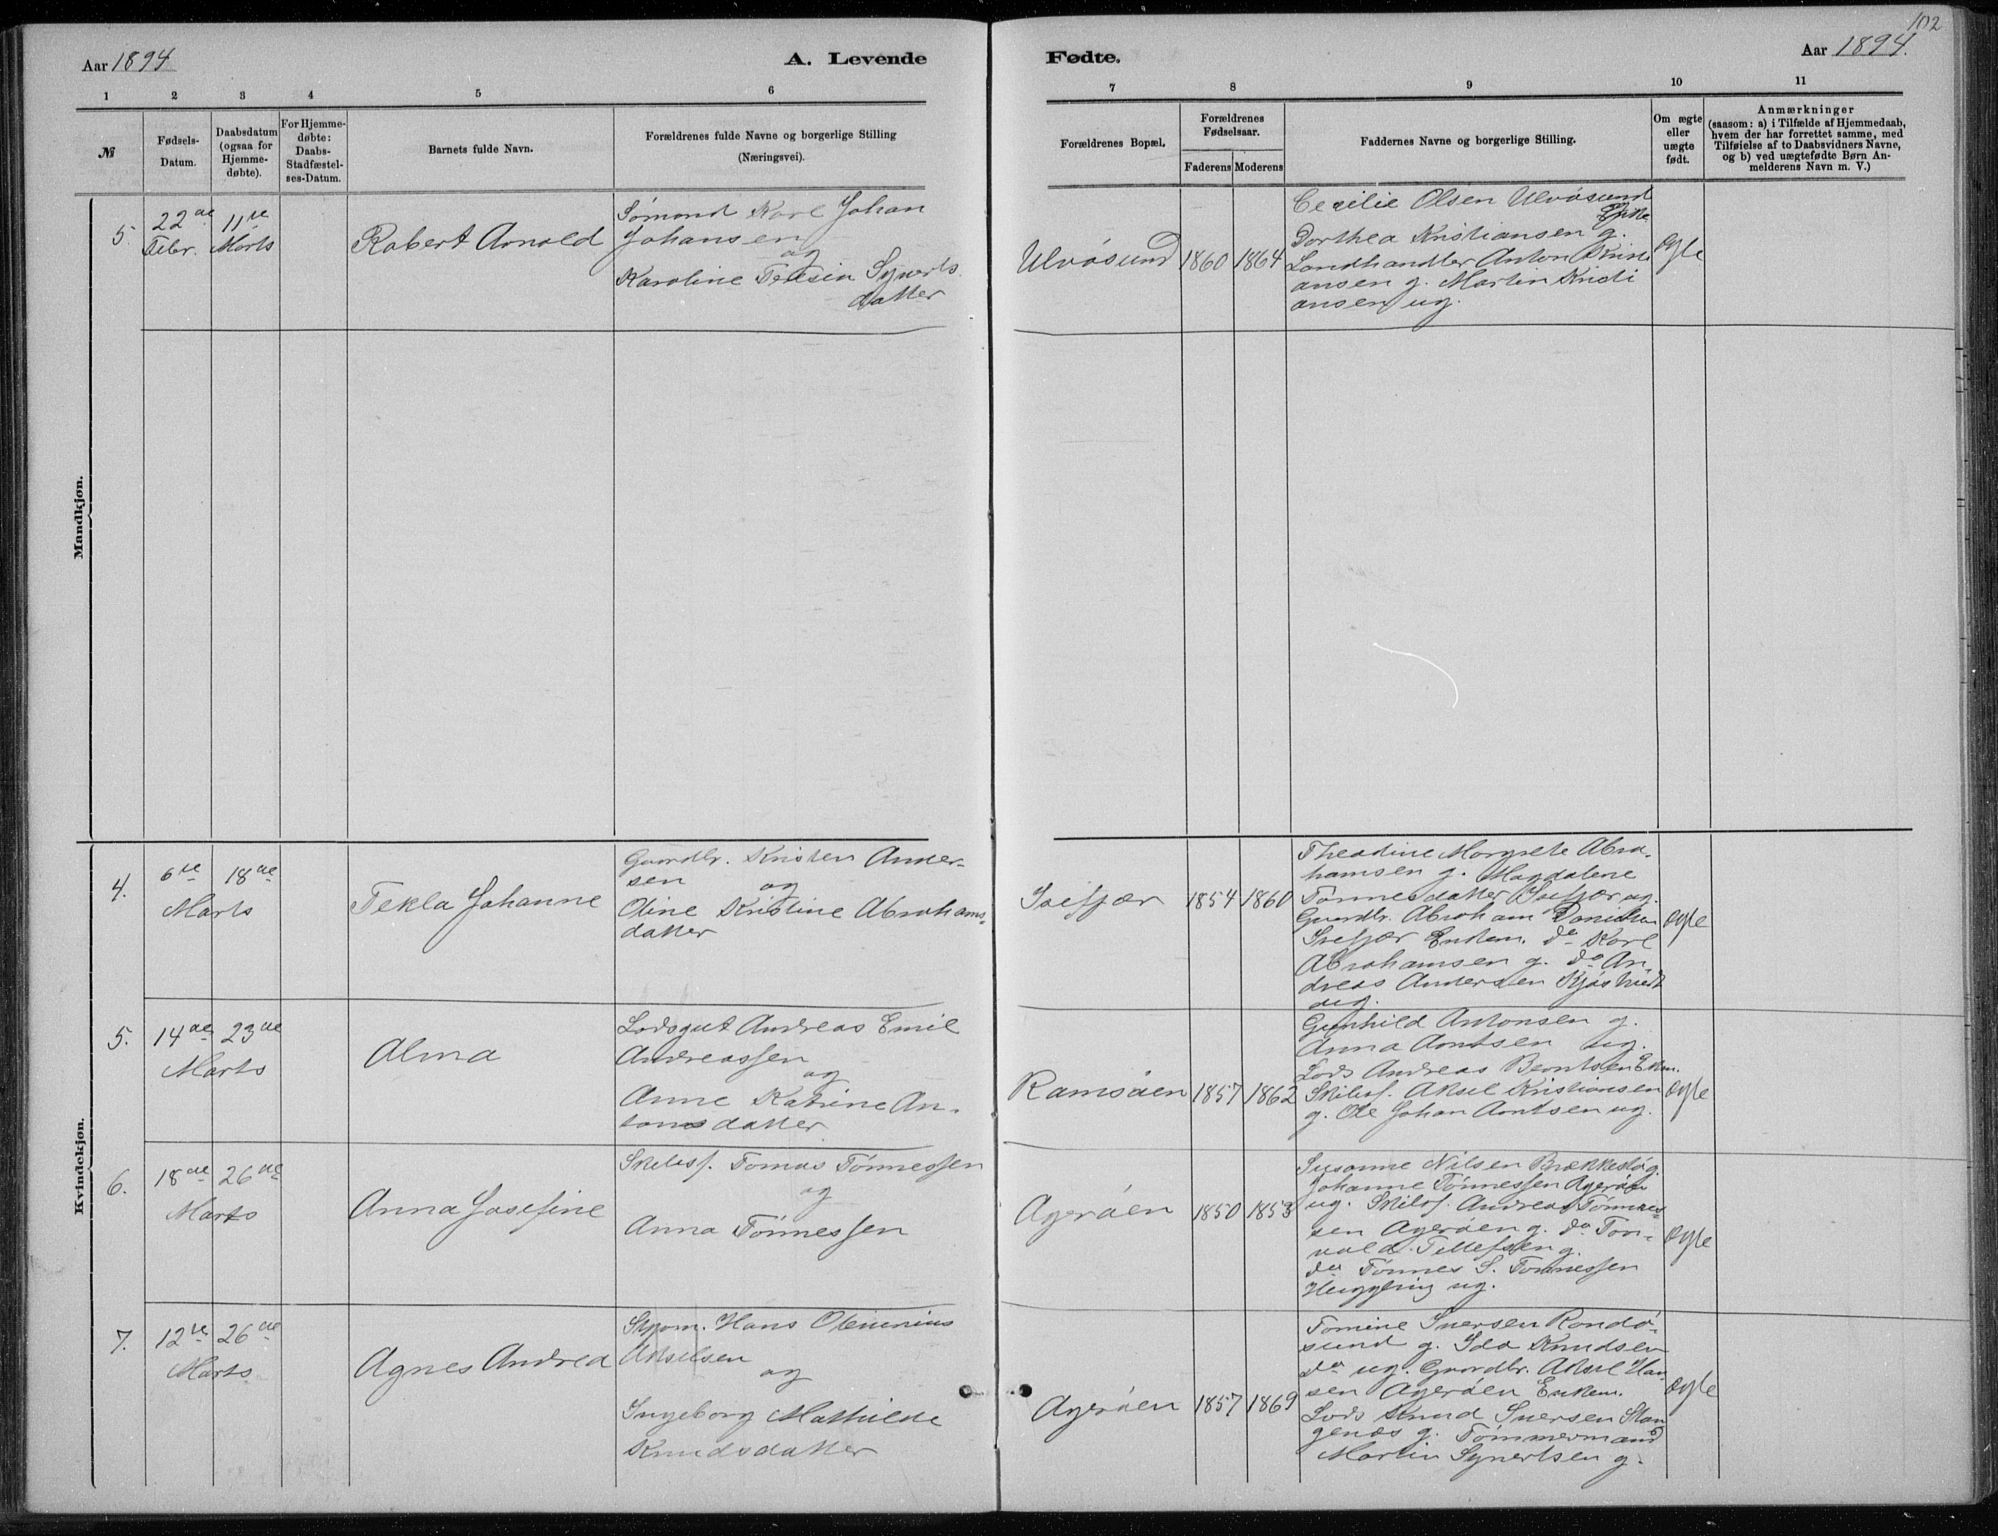 102
Aar 1894
A. Levende
Fødte.
Aar 1894.
1 2 3 4 5 6
7 8 9 10 11
№
Fødsels-
Datum.
Daabsdatum
(ogsaa for
Hjemme-
døbte).
For Hjemme-
døbte:
Daabs-
Stadfæstel-
ses-Datum.
Barnets fulde Navn.
Forældrenes fulde Navne og borgerlige Stilling
(Næringsvei).
Forældrenes Bopæl.
Forældrenes
Fødselsaar.
Faderens Moderens
Faddernes Navne og borgerlige Stilling.
Om ægte
eller
uægte
født.
Anmærkninger
(saasom: a) i Tilfælde af Hjemmedaab,
hvem der har forrettet samme, med
Tilføielse af to Daabsvidners Navne,
og b) ved uægtefødte Børn An-
melderens Navn m. V.)
Mandkjøn.
5.
22de
Febr.
11te
Marts
Robert Arnold
Sømand Karl Johan
Johansen
og
Karoline Tersin Syverts
datter
Ulvøsund
1860 1864
Cecilie Olsen Ulvøsund
Enke
Dorthea Kristiansen g.
Landhandler Anton Kristi
ansen g. Martin Kristi
ansen ug.
Ægte
Kvindekjøn.
4.
6te 18de
Marts
Tekla Johanne
Gaardbr. Kristen Ander-
sen og
Oline Kristine Abrahams-
datter
1854 1860
Theadine Margrete Abra-
hamsen g. Magdalene
Tønnesdatter ug.
Gaardbr. Abraham
Enkem. do Karl
Abrahamsen g. do An-
dreas Andersen
ug.
Ægte
5.
14de 23de
Marts
Alma
Lodsgut Andreas Emil
Andreassen
og
Anne Katrine An-
tonsdatter
Ramsøen
1857 1862
Gunhild Antonsen g.
Anna Arntsen ug.
Lods Andreas Berntsen Enkm.
Skibsf. Aksel Kristiansen
g. Ole Johan Arntsen ug.
Ægte
6.
18de 26de
Marts
Anna Josefine
Skibsf. Tomas Tønnessen
og
Anna Tønnessen
Agerøen
1850 1853
Susanne Nilsen Brækkestø g.
Johanne Tønnessen Agerøen
ug. Skibsf. Andreas Tønnes-
sen Agerøen g. do Tor-
vald Tellefsen g.
do Tønnes S. Tønnessen
ug.
Ægte
7.
12te 26de
Marts
Agnes Andrea
Skpm. Hans
Akselsen
og
Ingeborg Mathilde
Knudsdatter
Agerøen
1857 1869
Tomine Iversen Randø-
sund g. Ida Knudsen
do ug. Gaardbr. Aksel Han
sen Agerøen Enkem.
Lods Knud Iversen Stan
genæs g. Tømmermand
Martin Syvertsen g.
Ægte